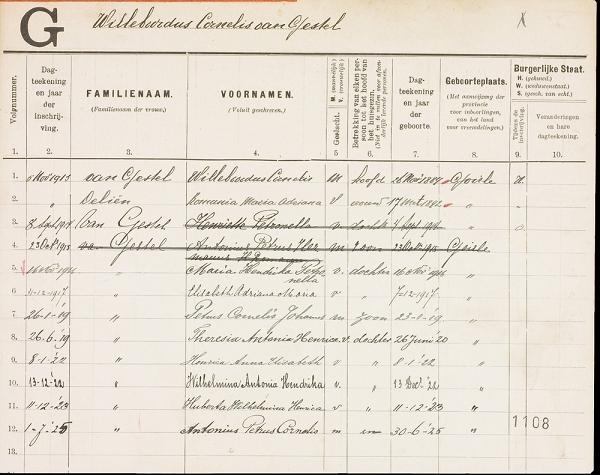 G Willebrordus Cornelis van Gestel
Volgnummer. Dag-teekening en jaar der inschrijving. FAMILIENAAM. (Familienaam der vrouw.) VOORNAMEN. (Voluit geschreven.) Geslacht. M. (mannelijk) V. (vrouwelijk) Betrekking van elken persoon tot het hoofd van het huisgezin. Dag-teekening en jaar der geboorte. Geboorteplaats. (Met aanwijzing der provincie voor inboorlingen, van het land voor vreemdelingen.) Burgerlijke Staat. H. (gehuwd.) W. (weduwenstaat.) S. (gesch. van echt.) Tijdens de inschrijving. Veranderingen en hare dagteekening.
1. 2. 3. 4. 5 6. 7. 8. 9. 10.
1. 1913 van Gestel Cornelis m hoofd Goirle H.
2. Maria Adriana v 17
3. 8 Sept 1914 Van Gestel Henriette Petronella v dochter
4. 23 Oct 1915 van Gestel Antonius Petrus m zoon 23 Oct 1915 Goirle
5. 16 Maria Hendrika Petronella v. dochter 16
6. 11-12-1917 " Elisabeth Adriana Maria v " 7-12-1917. "
7. 26-1-'19 " Petrus Cornelis Johannes m zoon 23-1-19 "
8. 26-6-'19 " Theresia Antonia Henrica v. dochter 26 Juni '20 "
9. 8-1-'22 " Henrica Anna Elisabeth v " 8-1-'22 "
10. 13-12-'22 " Wilhelmina Antonia Hendrika v. " 13 Dec. '22 "
11. 11-12-'23 " Huberta Wilhelmina Henrica v " 11-12-'23 "
12. 1-7-'25 " Antonius Petrus Cornelis m 30-6-'25 " 1108
13.